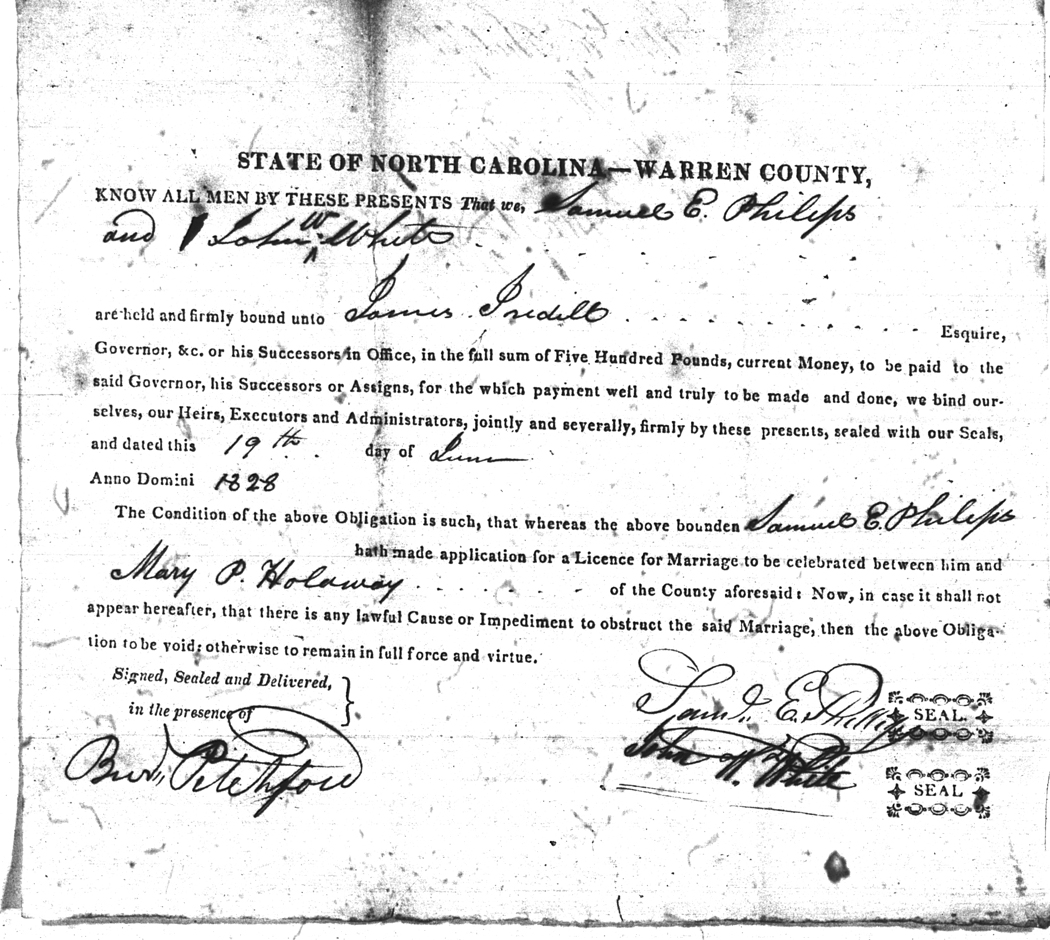 STATE OF NORTH CAROLINA—WARREN COUNTY,
KNOW ALL MEN BY THESE PRESENTS That we, Samuel E. Philips
and John W. White
are held and firmly bound unto James Iredell Esquire,
Governor, &c. or his Successors in Office, in the full sum of Five Hundred Pounds, current Money, to be paid to the
said Governor, his Successors or Assigns, for the which payment well and truly to be made and done, we bind our-
selves, our Heirs, Executors and Administrators, jointly and severally, firmly by these presents, sealed with our Seals,
and dated this 19th day of June
Anno Domini 1828
The Condition of the above Obligation is such, that whereas the above bounden Samuel E. Philips
hath made application for a Licence for Marriage to be celebrated between him and
Mary P. Holaway of the County aforesaid: Now, in case it shall not
appear hereafter, that there is any lawful Cause or Impediment to obstruct the said Marriage, then the above Obliga-
tion to be void; otherwise to remain in full force and virtue.
Signed, Sealed and Delivered,
in the presence of
Saml. E. Phillips SEAL.
John W. White SEAL
Pitchford